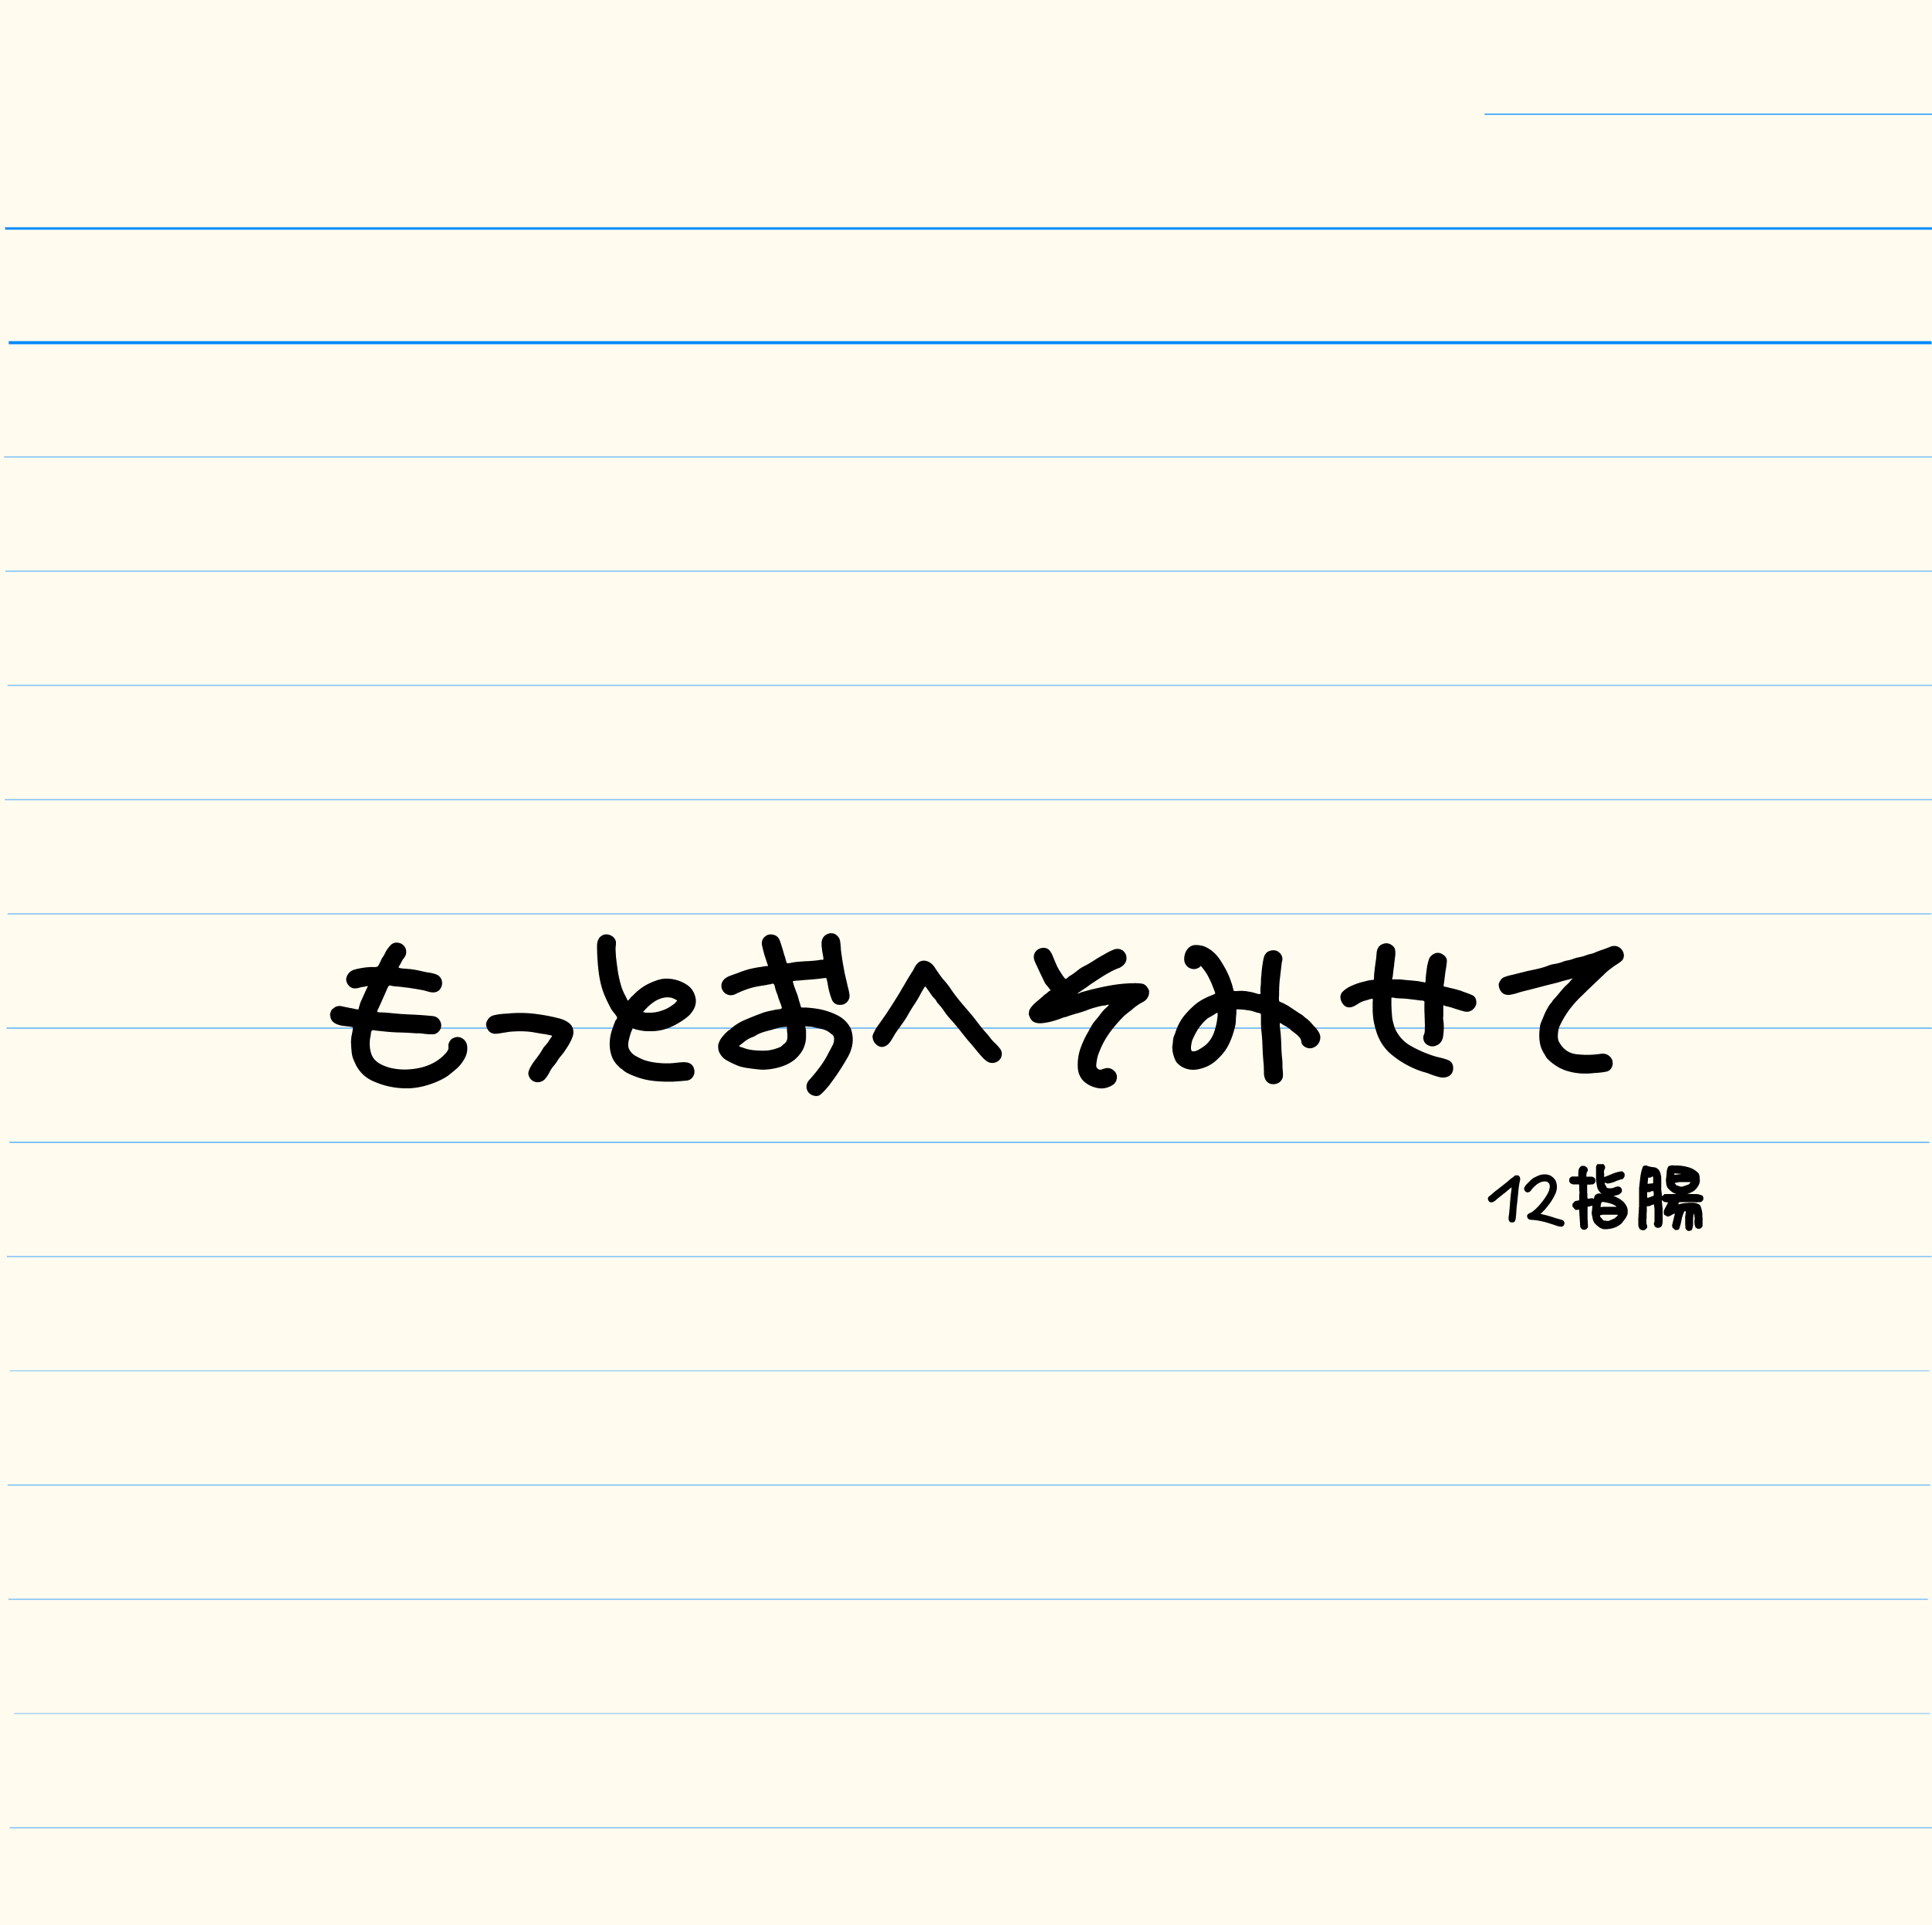 もっとおへそみせて
12指腸